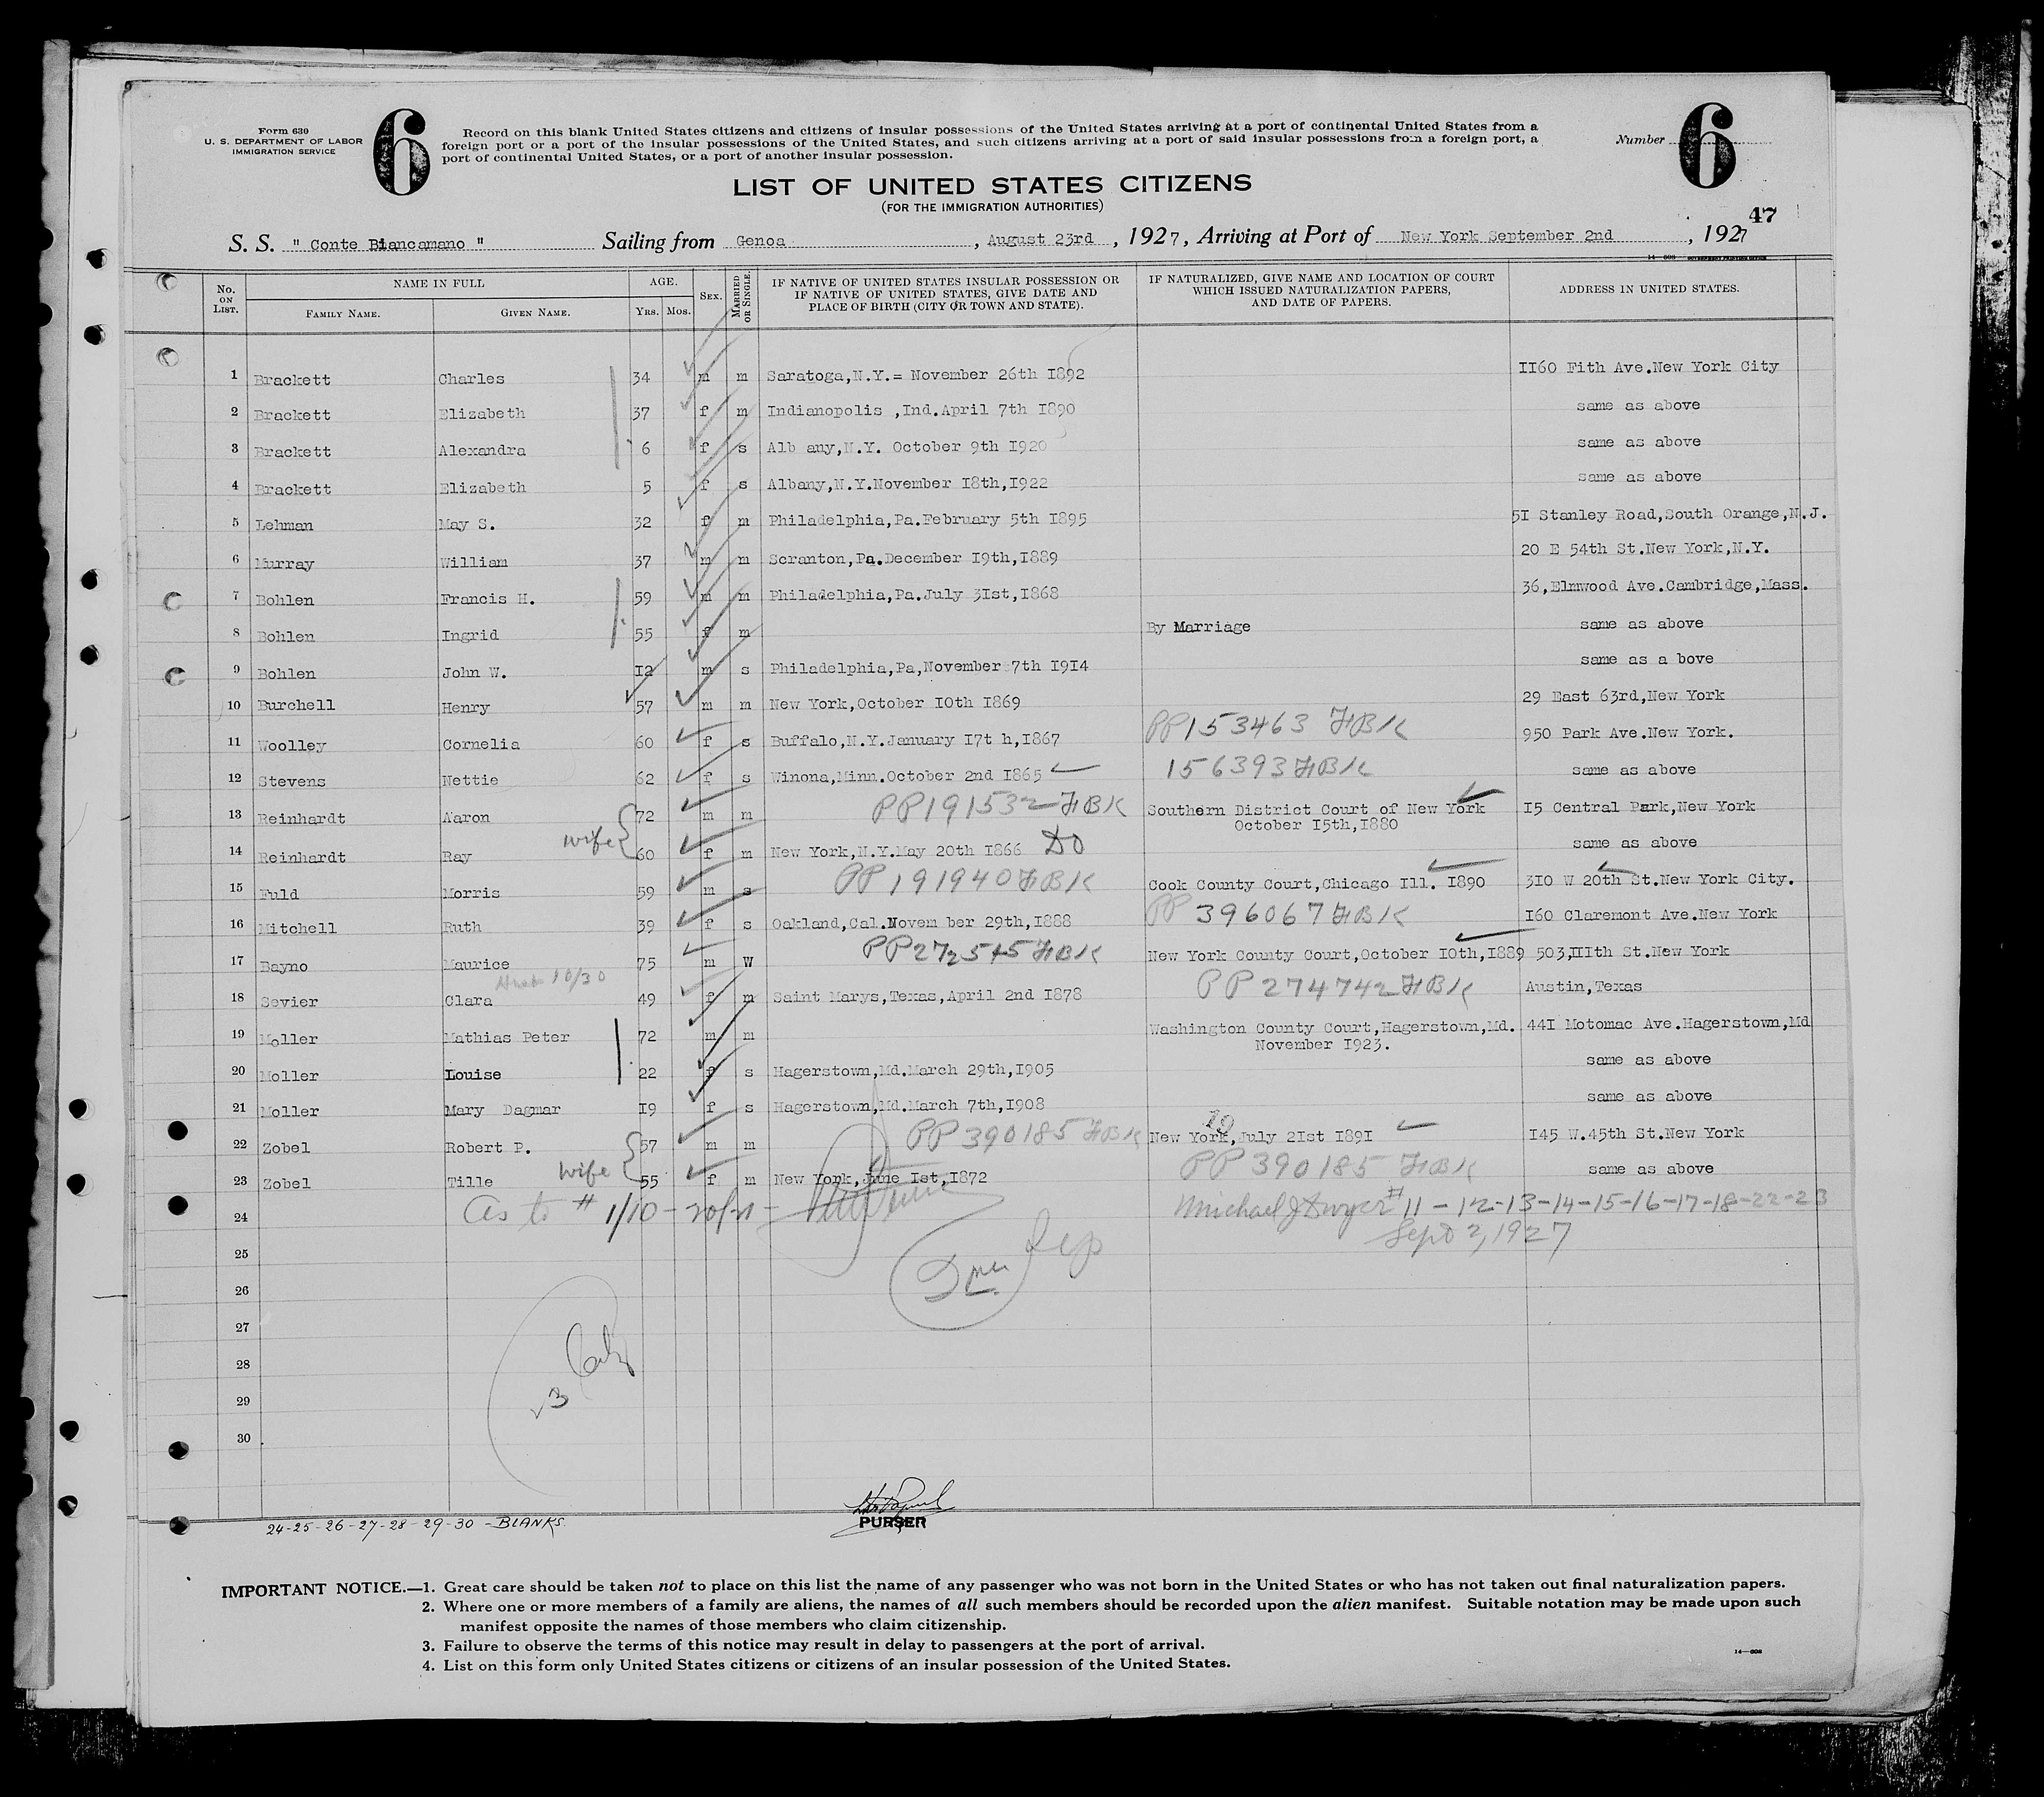 Form 630
U. S. DEPARTMENT OF LABOR
IMMIGRATION SERVICE
6
Record on this blank United States citizens and citizens of insular possessions of the United States arriving at a port of continental United States from a
foreign port or a port of the insular possessions of the United States, and such citizens arriving at a port of said insular possessions from a foreign port, a
port of continental United States, or a port of another insular possession.
Number 6
LIST OF UNITED STATES CITIZENS
(FOR THE IMMIGRATION AUTHORITIES)
47
S. S. " Conte Biancamano " Sailing from Genoa , August 23rd , 1927, Arriving at Port of New York September 2nd , 1927
No. ON LIST. NAME IN FULL FAMILY NAME. GIVEN NAME. AGE. YRS. MOS. SEX. MARRIED OR SINGLE. IF NATIVE OF UNITED STATES INSULAR POSSESSION OR IF NATIVE OF UNITED STATES, GIVE DATE AND PLACE OF BIRTH (CITY OR TOWN AND STATE). IF NATURALIZED, GIVE NAME AND LOCATION OF COURT WHICH ISSUED NATURALIZATION PAPERS, AND DATE OF PAPERS. ADDRESS IN UNITED STATES.
1 Brackett Charles 34 m m Saratoga,N.Y.= November 26th I892 II60 Fith Ave.New York City
2 Brackett Elizabeth 37 f m Indianopolis ,Ind.April 7th I890 same as above
3 Brackett Alexandra 6 f s Alb any,N.Y. October 9th I920 same as above
4 Brackett Elizabeth 5 f s Albany,N.Y.November I8th,I922 same as above
5 Lehman May S. 32 f m Philadelphia,Pa.February 5th I895 5I Stanley Road,South Orange,N.J.
6 Murray William 37 m m Scranton,Pa.December I9th,I889 20 E 54th St.New York,N.Y.
7 Bohlen Francis H. 59 m m Philadelphia,Pa.July 3Ist,I868 36,Elmwood Ave.Cambridge,Mass.
8 Bohlen Ingrid 55 f m By Marriage same as above
9 Bohlen John W. I2 m s Philadelphia,Pa,November 7th I9I4 same as a bove
10 Burchell Henry 57 m m New York,October I0th I869 29 East 63rd,New York
11 Woolley Cornelia 60 f s Buffalo,N.Y.January I7t h,I867 PP153463 FBK 950 Park Ave.New York.
12 Stevens Nettie 62 f s Winona,Minn.October 2nd I865 156393 FBK same as above
13 Reinhardt Aaron 72 m m PP191532 FBK Southern District Court of New York I5 Central Park,New York
October I5th,I880
wife
14 Reinhardt Ray 60 f m New York,N.Y.May 20th I866 Do same as above
15 Fuld Morris 59 m s PP 191940 FBK Cook County Court,Chicago Ill. I890 3I0 W 20th St.New York City.
16 Mitchell Ruth 39 f s Oakland,Cal.Novem ber 29th,I888 PP 396067 FBK I60 Claremont Ave.New York
17 Bayno Maurice 75 m W PP272515 FBK New York County Court,October I0th,I889 503,IIIth St.New York
10/30
18 Sevier Clara 49 f m Saint Marys,Texas,April 2nd I878 PP 274742 FBK Austin,Texas
19 Moller Mathias Peter 72 m m Washington County Court,Hagerstown,Md. 44I Motomac Ave.Hagerstown,Md
November I923.
20 Moller Louise 22 f s Hagerstown,Md.March 29th,I905 same as above
21 Moller Mary Dagmar I9 f s Hagerstown,Md.March 7th,I908 same as above
22 Zobel Robert P. 57 m m PP 390185 FBK New York,July 2Ist I89I 19 I45 W.45th St.New York
wife
23 Zobel Tille 55 f m New York,June Ist,I872 PP 390185 FBK same as above
24 As to # 1/10 - 20/21 - Michael J Dwyer #11-12-13-14-15-16-17-18-22-23
Sept 2, 1927
25
26
27
28
29
30
24-25-26-27-28-29-30 - BLANKS
PURSER
IMPORTANT NOTICE.—1. Great care should be taken not to place on this list the name of any passenger who was not born in the United States or who has not taken out final naturalization papers.
2. Where one or more members of a family are aliens, the names of all such members should be recorded upon the alien manifest. Suitable notation may be made upon such
manifest opposite the names of those members who claim citizenship.
3. Failure to observe the terms of this notice may result in delay to passengers at the port of arrival.
4. List on this form only United States citizens or citizens of an insular possession of the United States.